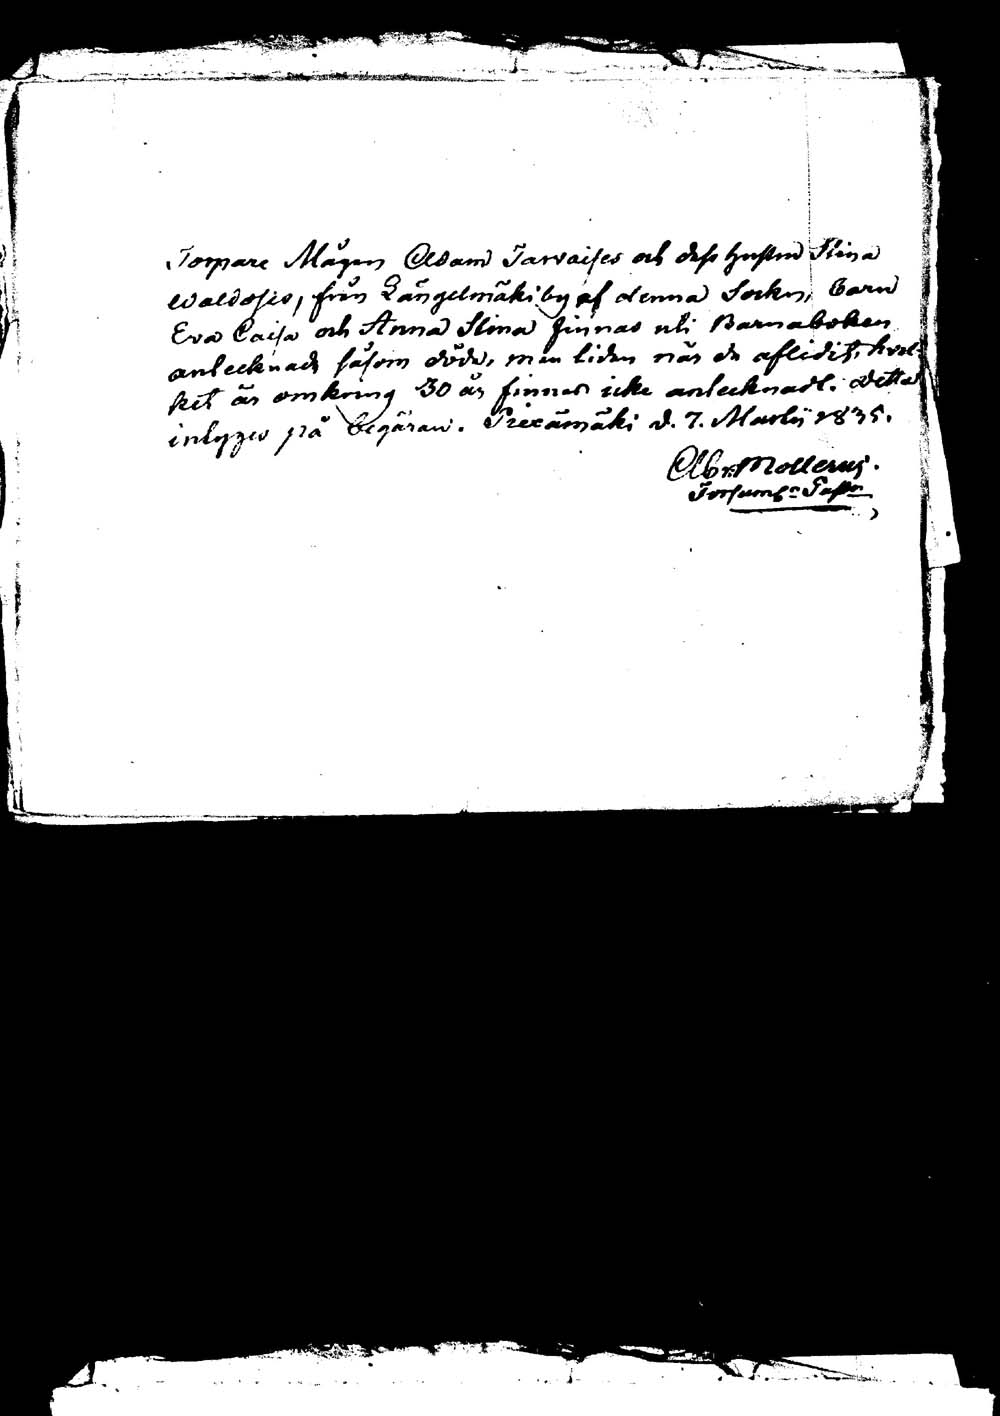 Torpare Mågen Adam Tarvaises och dess hustru Stina
Waldosio, från Längelmäki by af denna Sockn, barn
Eva Caisa och Anna Stina finnas uti Barnaboken
antecknade såsom döde, men tiden när de aflidit, hvil-
ket är omkring 30 år finnes icke antecknadt. Detta
intygges på begäran. Piexämäki d. 7. Martii 1835.
Abr: Mollerus.
Forsaml:s Past:r